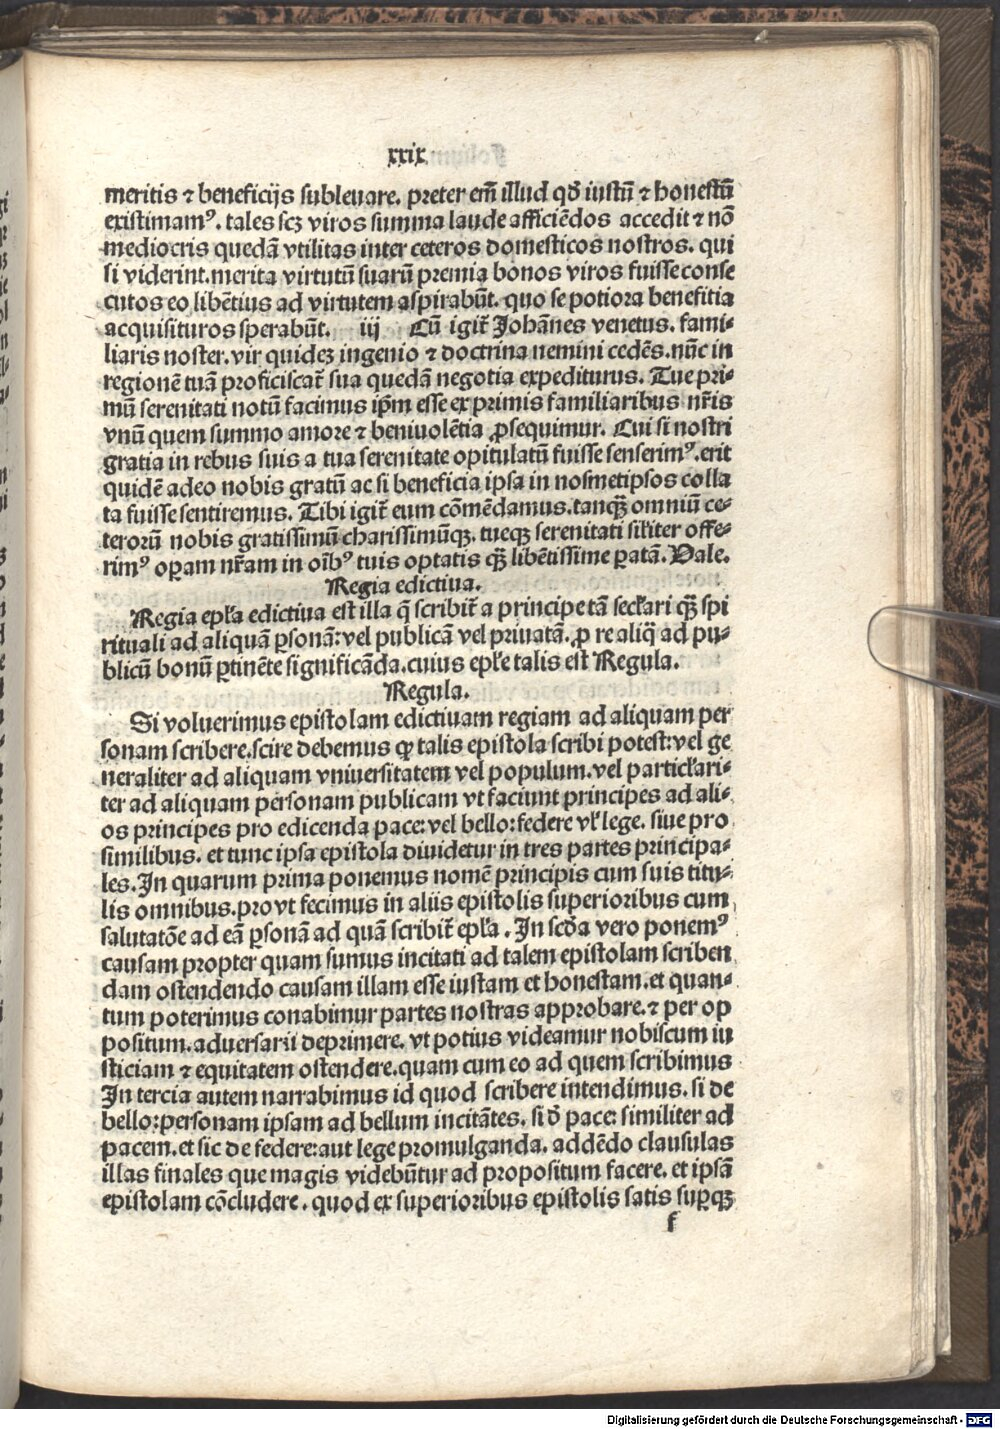 xxix
meritis ⁊ beneficijs subleuare. preter em̄ illud qd̄ iustū ⁊ honestū
existimamꝰ. tales scꝫ viros summa laude afficiēdos accedit ⁊ nō
mediocris quedā vtilitas inter ceteros domesticos nostros. qui
si viderint.merita virtutū suarū premia bonos viros fuisse conse
cutos eo libētius ad virtutem aspirabūt. quo se potiora benefitia
acquisituros sperabūt. iij Cū igit̄ Johānes venetus. fami⸗
liaris noster.vir quideꝫ ingenio ⁊ doctrina nemini cedēs.nūc in
regionē tuā proficiscat̄ sua quedā negotia expediturus. Tue pri⸗
mū serenitati notū facimus ip̄m esse ex primis familiaribus nr̄is
vnū quem summo amore ⁊ beniuolētia ꝓsequimur. Cui si nostri
gratia in rebus suis a tua serenitate opitulatū fuisse senserimꝰ.erit
quidē adeo nobis gratū ac si beneficia ipsa in nosmetipsos colla
ta fuisse sentiremus. Tibi igit̄ eum cōmēdamus.tanqꝫ̄ omniū ce⸗
terorū nobis gratissimū charissimūqꝫ. tueqꝫ serenitati sil̄iter offe⸗
rimꝰ oꝑam nr̄am in oīb̄ꝰ tuis optatis qꝫ̄ libētissime ꝑatā. Vale.
Regia edictiua.
Regia ep̄ła edictiua est illa q̄ scribit̄ a principe tā secl̄ari qꝫ̄ spi
rituali ad aliquā ꝑsonā:vel publicā vel priuatā. ꝓ re aliq̄ ad pu⸗
blicū bonū ꝑtinēte significāda.cuius ep̄łe talis est Regula.
Regula.
Si voluerimus epistolam edictiuam regiam ad aliquam per
sonam scribere.scire debemus ꝙ talis epistola scribi potest:vel ge
neraliter ad aliquam vniuersitatem vel populum.vel particl̄ari⸗
ter ad aliquam personam publicam vt faciunt principes ad ali⸗
os principes pro edicenda pace:vel bello:federe vl̄ lege. siue pro
similibus. et tunc ipsa epistola diuidetur in tres partes principa⸗
les.In quarum prima ponemus nomē principis cum suis titu⸗
lis omnibus.pro vt fecimus in aliis epistolis superioribus cum
salutatōe ad eā ꝑsonā ad quā scribit̄ ep̄ła. In scd̄a vero ponemꝰ
causam propter quam sumus incitati ad talem epistolam scriben
dam ostendendo causam illam esse iustam et honestam.et quan⸗
tum poterimus conabimur partes nostras approbare.⁊ per op
positum.aduersarii deprimere. vt potius videamur nobiscum iu
sticiam ⁊ equitatem ostendere.quam cum eo ad quem scribimus
In tercia autem narrabimus id quod scribere intendimus. si de
bello:personam ipsam ad bellum incitātes. si d̄ pace: similiter ad
pacem.et sic de federe:aut lege promulganda. addēdo clausulas
illas finales que magis videbūtur ad propositum facere. et ipsā
epistolam cōcludere. quod ex superioribus epistolis satis suꝑqꝫ
f
Digitalisierung gefördert durch die Deutsche Forschungsgemeinschaft - DFG